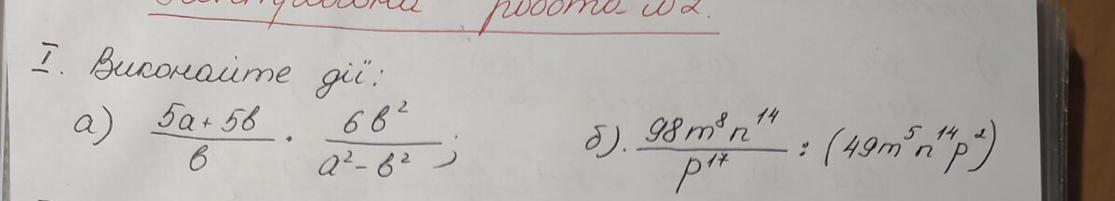 робота №2.
I. Виконайте дії:
а) (5a + 5b)/b · 6b²/(a² - b²); б). 98m⁸n¹⁴/p¹⁷ : (49m⁵n¹⁴p²)